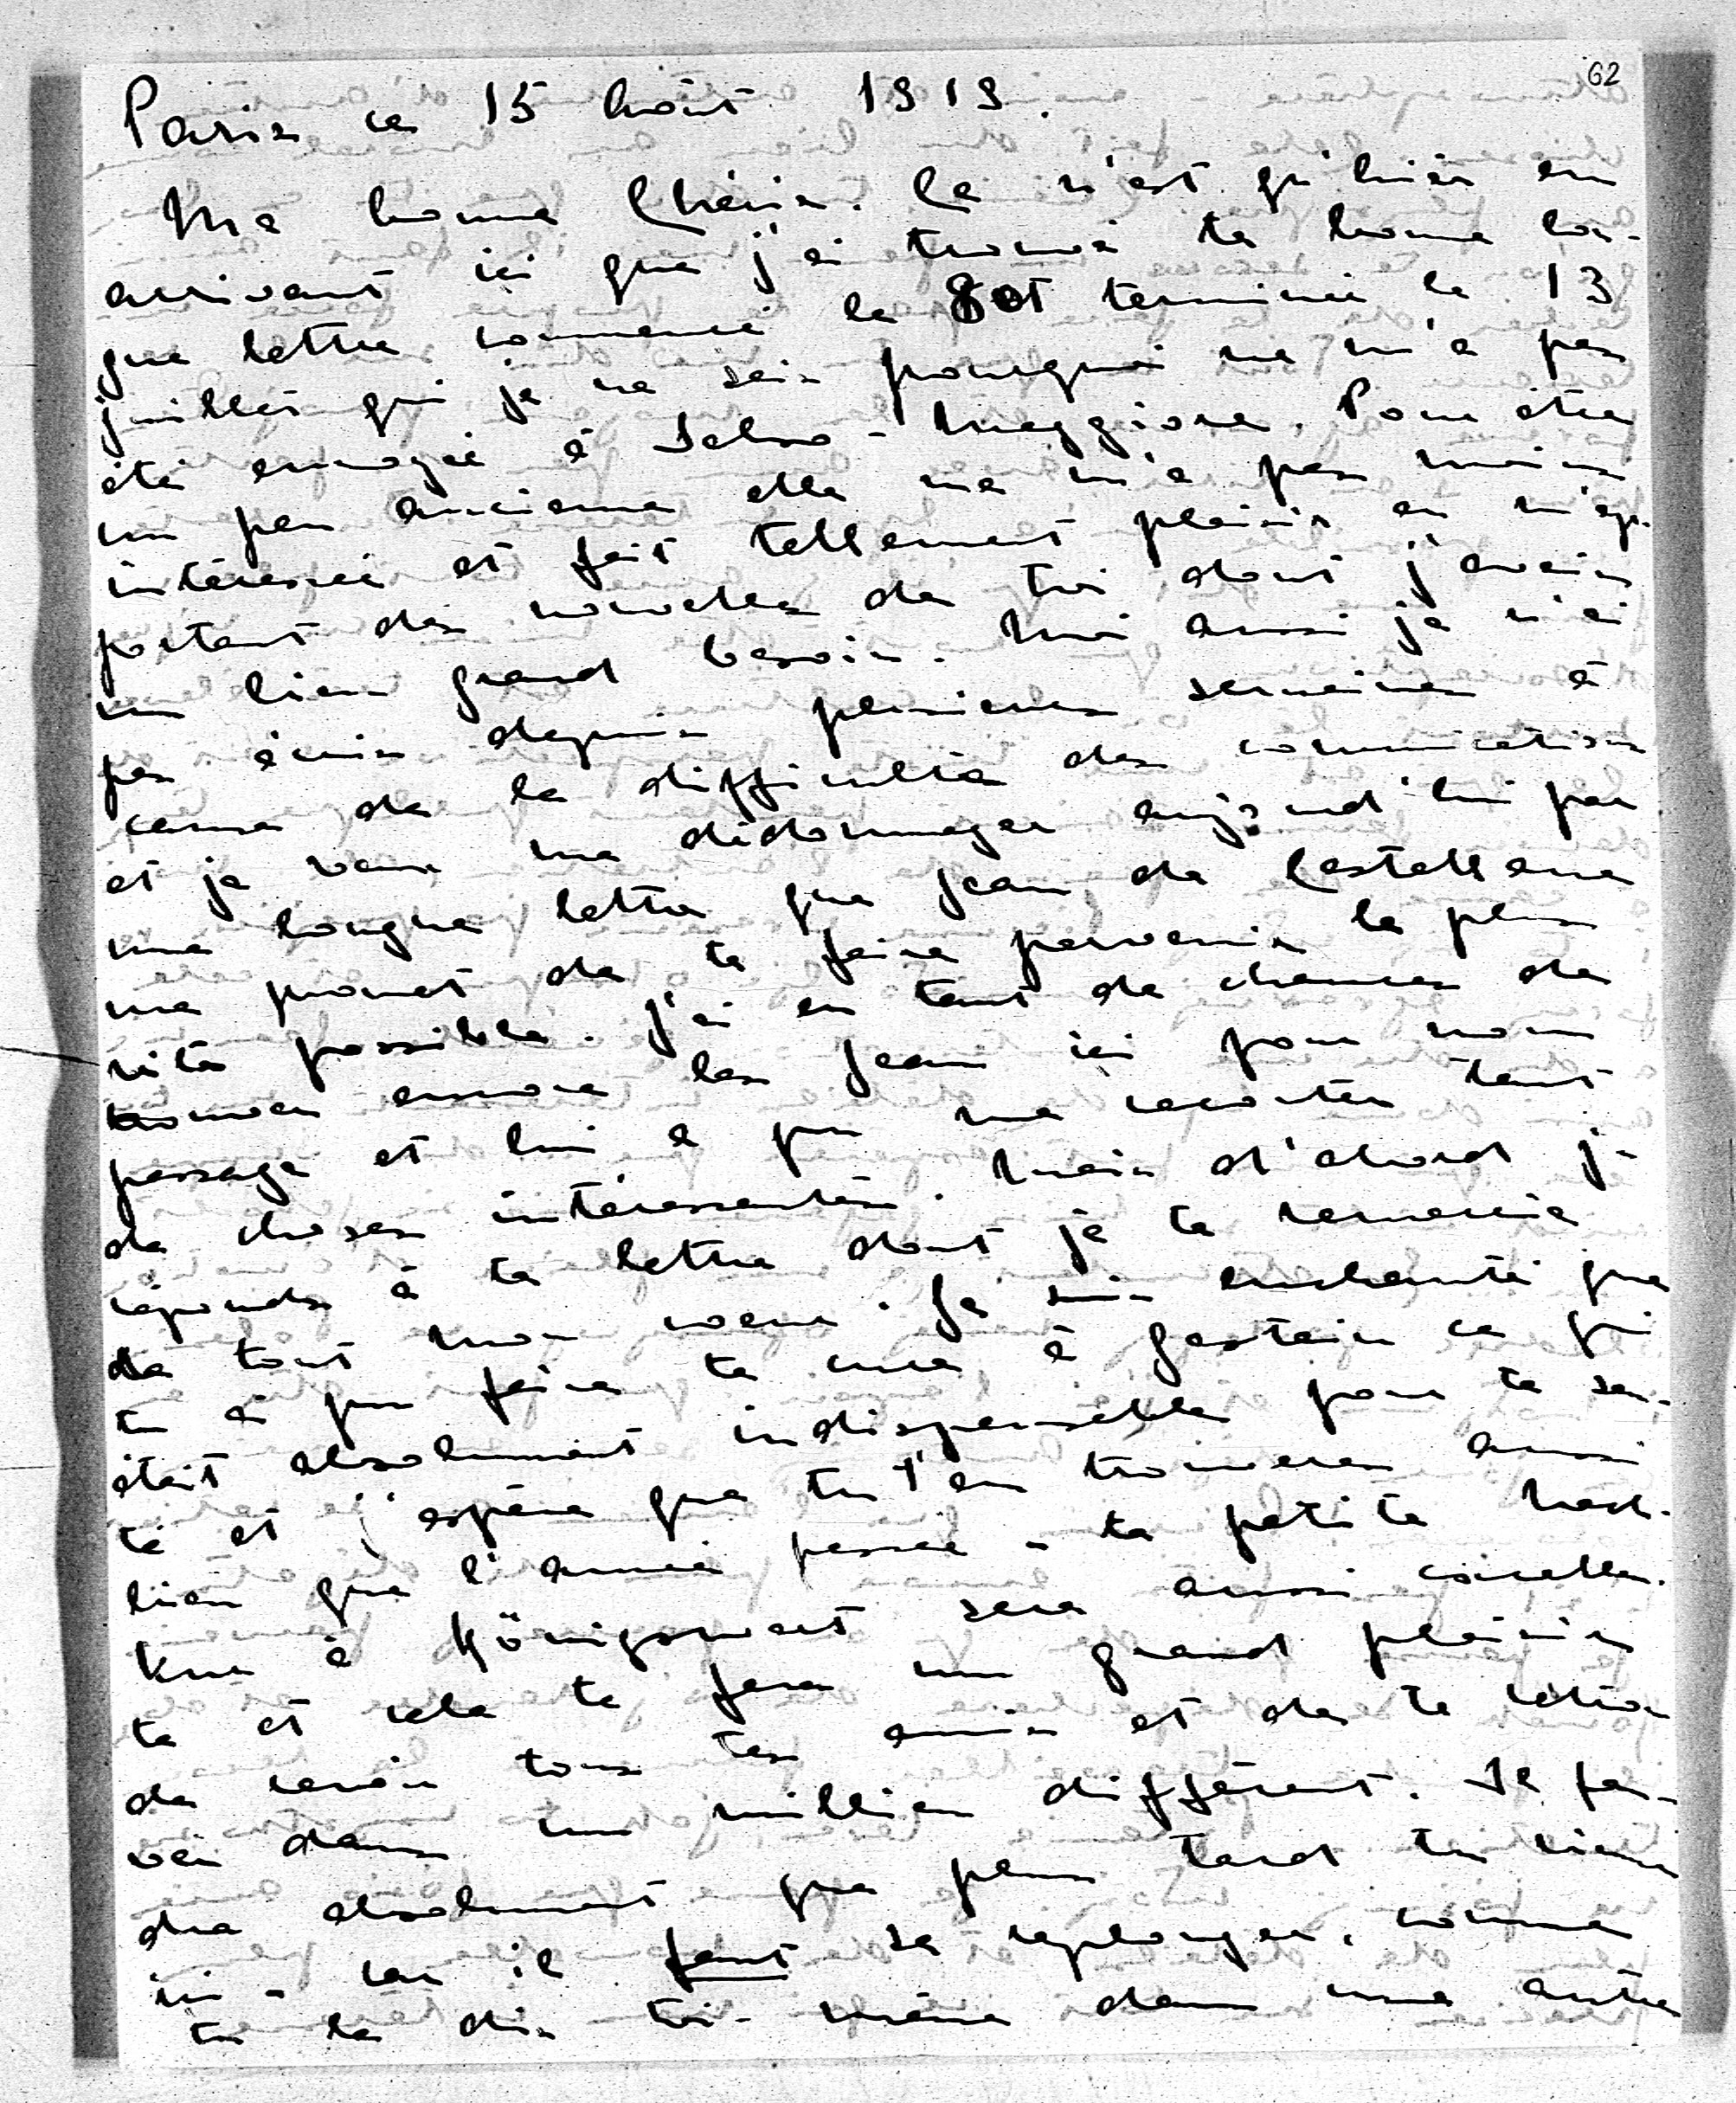 62
Paris ce 15 Août 1919.
Ma bonne Chérie. Ce n'est qu'hier en
arrivant ici que j'ai trouvé ta bonne lon-
gue lettre commencé le 8 et terminée le 13
juillet qui je ne sais pourquoi ne m'a pas
été envoyée à Salso-Maggiore. Pour être
un peu ancienne elle ne m'a pas moins
intéressée et fait tellement plaisir en m'ap-
portant des nouvelles de toi dont j'avais
un bien grand besoin. Moi aussi je n'ai
pas écris depuis plusieurs semaines à
cause de la difficulté des communications
et je veux me dédommager aujourd'hui par
une longue lettre que Jean de Castellane
me promet de te faire parvenir le plus
vite possible. J'ai eu tant de chance de
trouver encore les Jean ici pour mon
passage et lui a pu me raconter tant
de choses intéressantes. Mais d'abord je
réponds à ta lettre dont je te remercie
de tout mon coeur. Je suis enchantée que
tu ai pu faire ta cure à Gastein ce qui
était absolument indispensable pour ta san-
té et j'espère que tu t'en trouveras aussi
bien que l'année passée - ta petite Nach-
kur à Königswart sera aussi excellen-
te et cela te fera un grand plaisir
de revoir tous tes amis et de te retrou-
ver dans un millieu différent. Il fau-
dra absolument que plus tard tu viennes
ici - car il faut se replonger, comme
tu le dis toi-même dans une autre